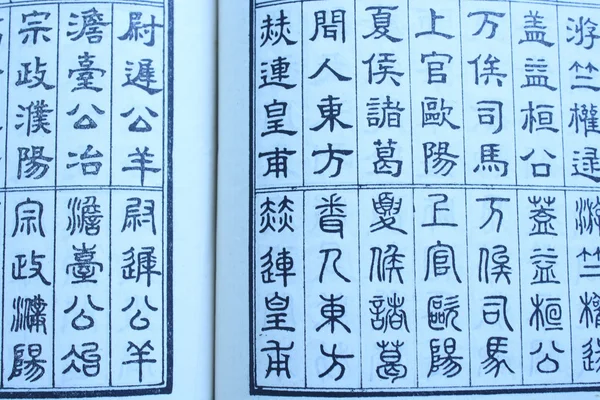 游竺權逯
盖益桓公
万俟司馬
上官歐陽
夏侯諸葛
聞人東方
赫連皇甫
游竺權逯
蓋益桓公
万俟司馬
上官歐陽
夏侯諸葛
聞人東方
赫連皇甫
尉遲公羊
澹臺公冶
宗政濮陽
尉遲公羊
澹臺公冶
宗政濮陽